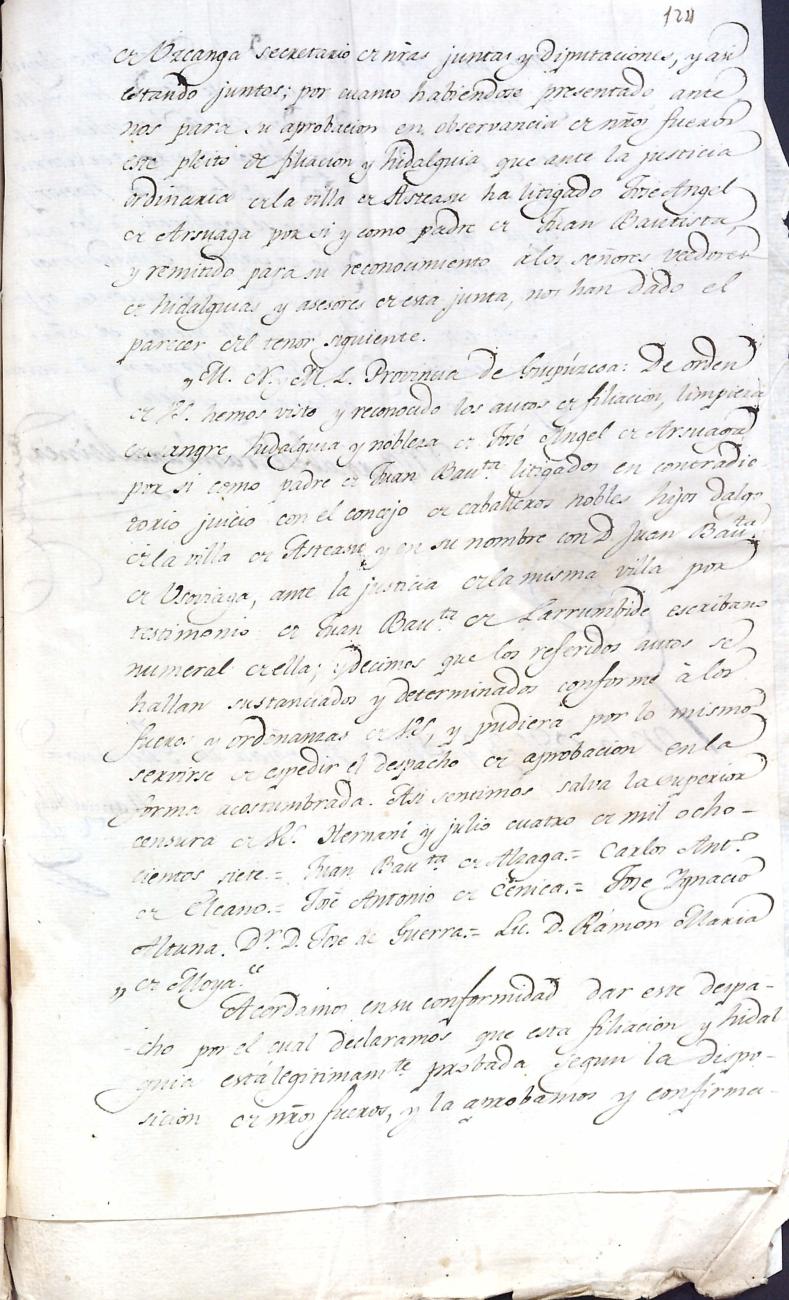 124
de Uzcanga secretario de nr̃as juntas y Diputaciones, y asi
estando juntos; por cuanto habiendose presentado ante
nos para su aprobacion en observancia de nr̃os fueros
este pleito de filiacion y hidalguia que ante la justicia
ordinaria de la villa de Asteasu ha litigado José Angel
de Arsuaga por si y como padre de Juan Bautista,
y remitido para su reconocimiento á los señores veedores
de hidalguias y asesores de esta junta, nos han dado el
parecer del tenor siguiente.
„M. N. y M. L. Provincia de Guipúzcoa: De orden
de V.S. hemos visto y reconocido los autos de filiacion, limpieza
de sangre, hidalguia y nobleza de José Angel de Arsuaga
por si como padre de Juan Bau.ta litigados en contradic-
torio juicio con el concejo de caballeros nobles hijos dalgo
de la villa de Asteasu, y en su nombre con D. Juan Bau.ta
de Usoviaga, ante la justicia de la misma villa por
testimonio de Juan Bau.ta de Larrumbide escribano
numeral de ella; y decimos que los referidos autos se
hallan sustanciados y determinados conforme á los
fueros y ordenanzas de V.S., y pudiera por lo mismo
servirse de espedir el despacho de aprobacion en la
forma acostumbrada. Asi sentimos salva la superior
censura de V.S. Hernani y julio cuatro de mil ocho-
cientos siete.= Juan Bau.ta de Alzaga.= Carlos Ant.o
de Elcano.= José Antonio de Cenica.= José Ygnacio
Altuna. D.r D. José de Guerra.= Lic. D. Ramon Maria
„ de Moya.“
Acordamos en su conformidad dar este despa-
-cho por el cual declaramos que esta filiacion y hidal
guia está legitimam.te probada segun la dispo-
sicion de nr̃os fueros, y la aprobamos y confirma-